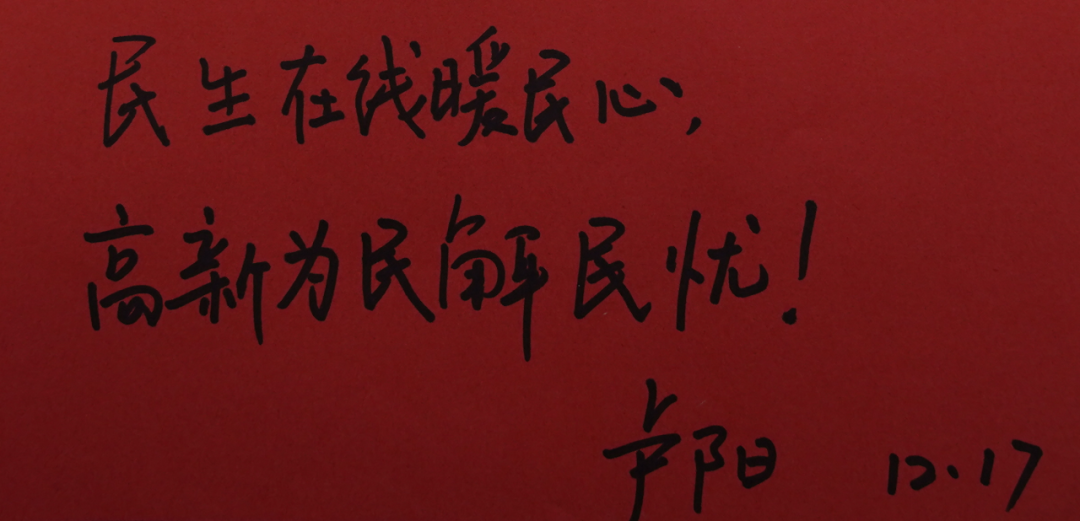 民生在线暖民心,
高新为民解民忧!
卢阳 12.17